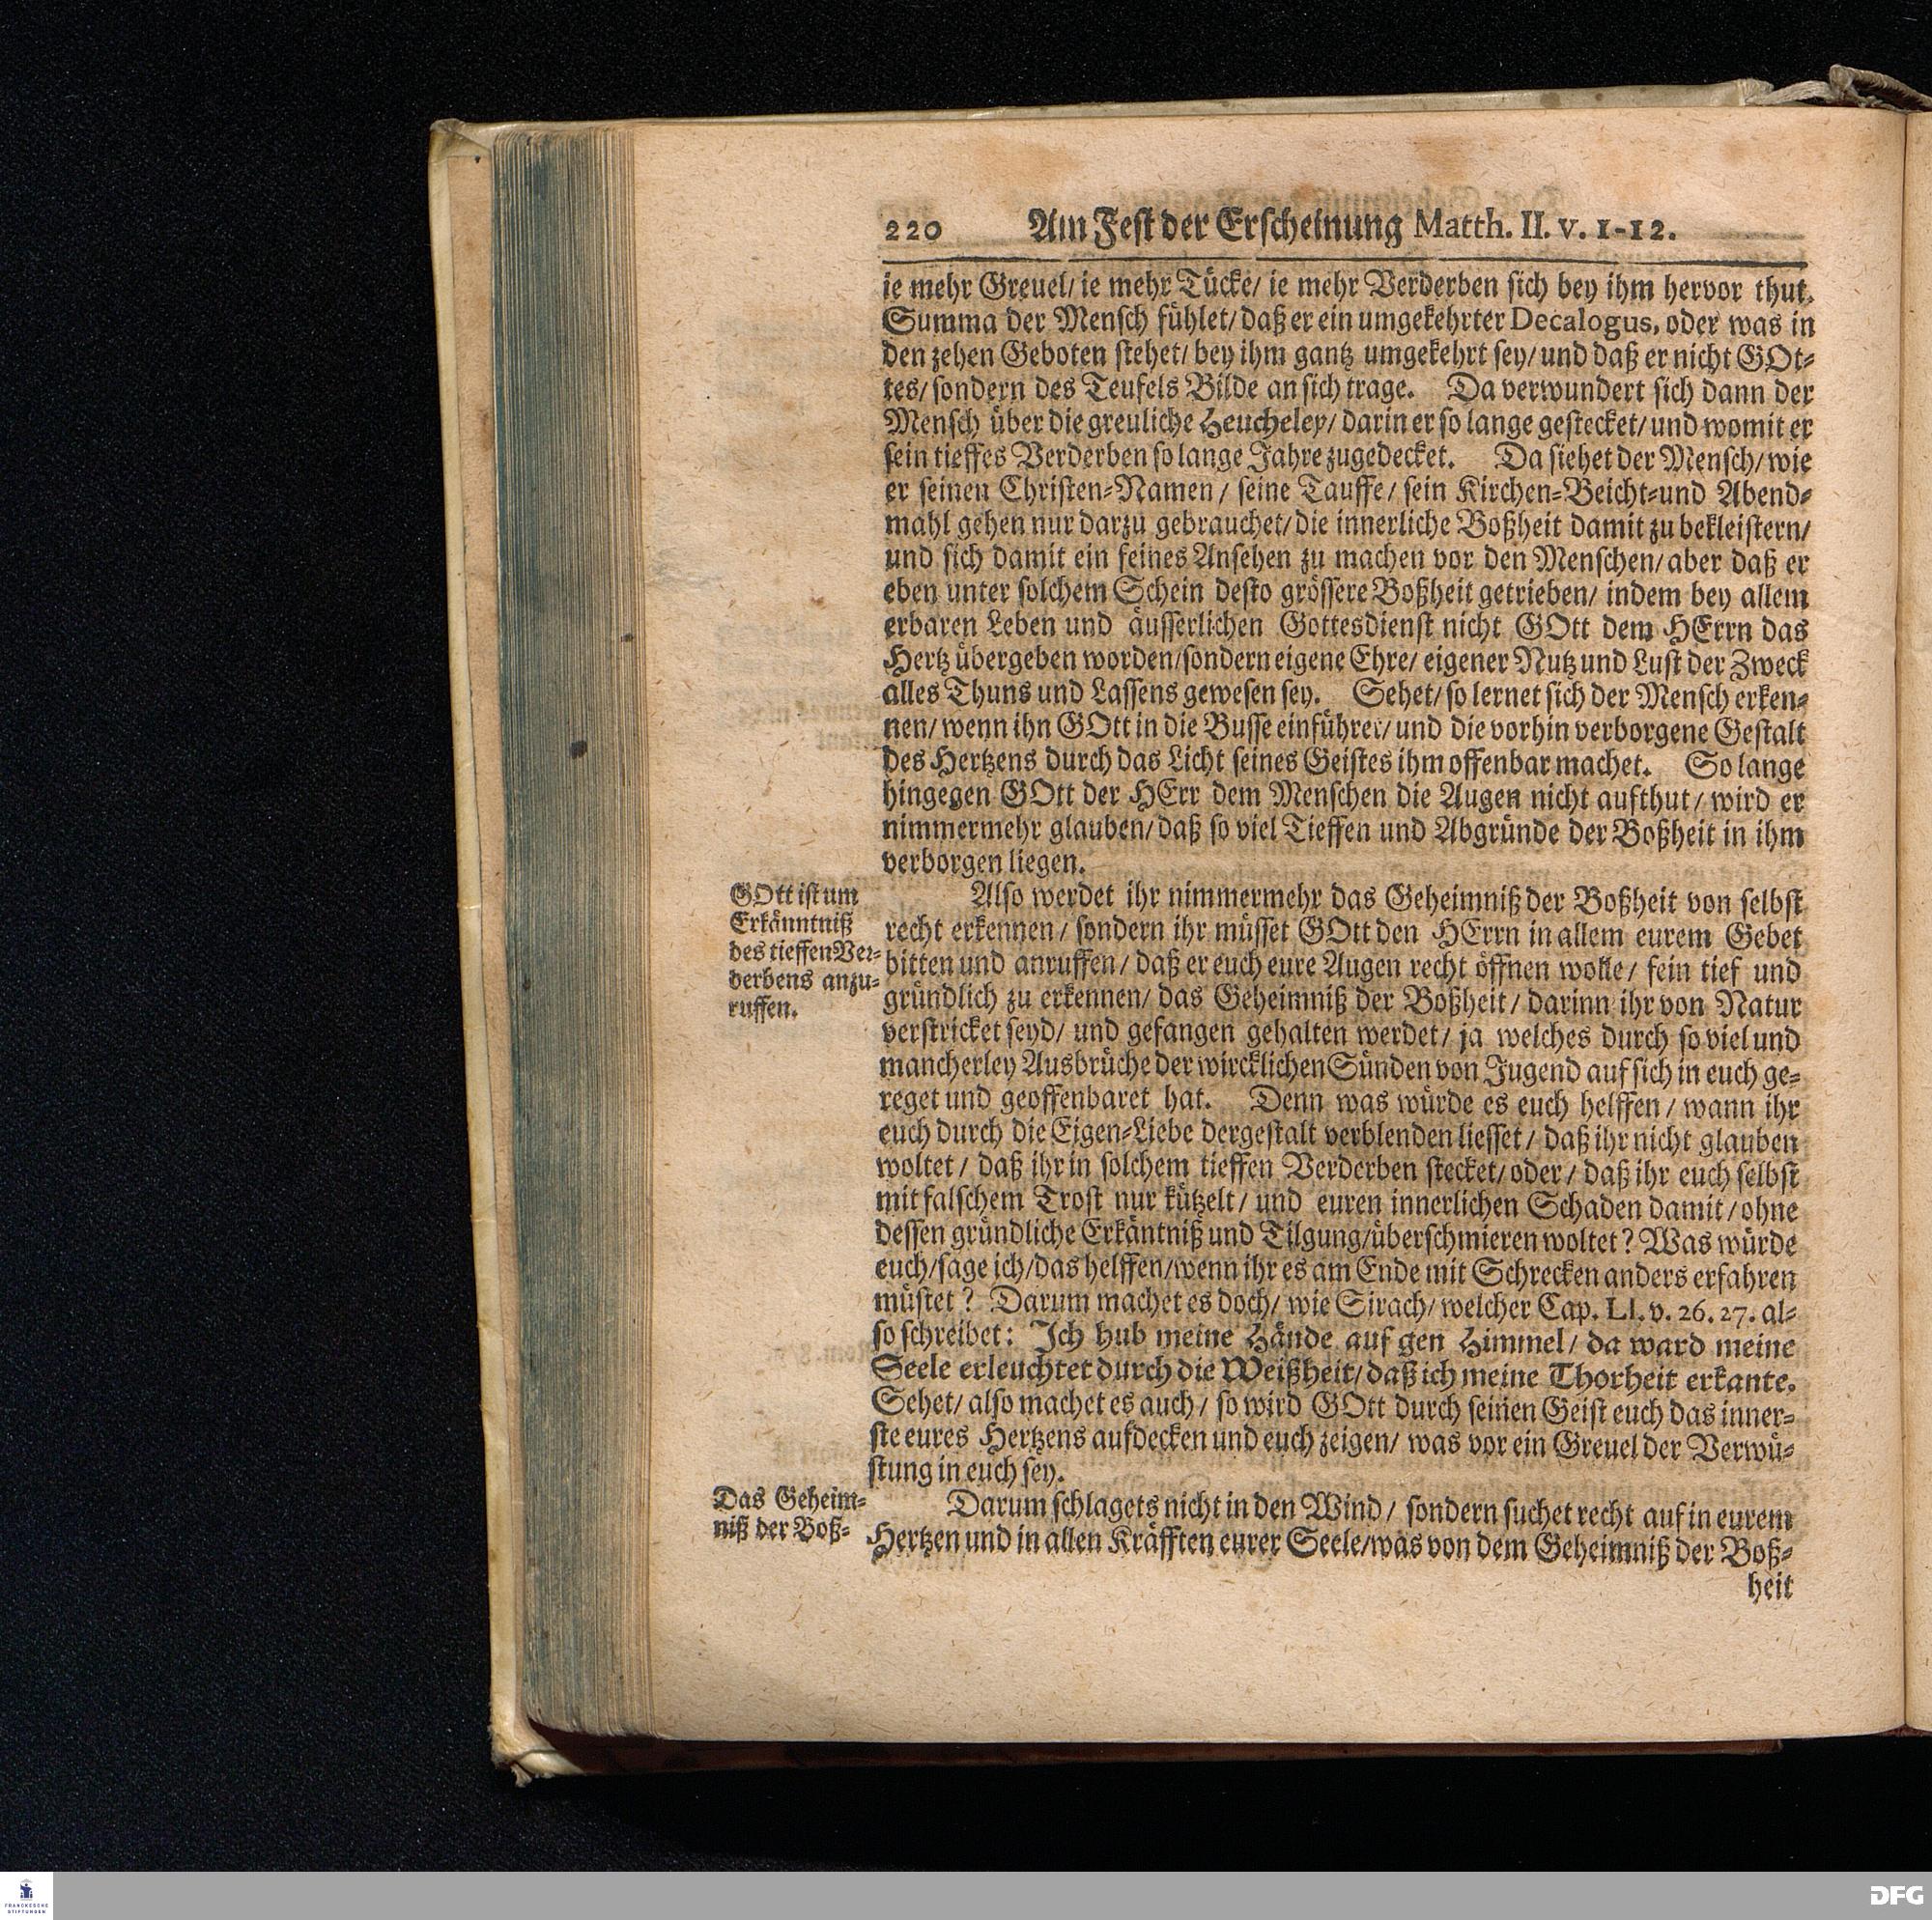 220 Am Fest der Erscheinung Matth. II. v. 1-12.
ie mehr Greuel/ ie mehr Tücke/ ie mehr Verderben sich bey ihm hervor thut.
Summa der Mensch fühlet/ daß er ein umgekehrter Decalogus, oder was in
den zehen Geboten stehet/ bey ihm gantz umgekehrt sey/ und daß er nicht GOt-
tes/ sondern des Teufels Bilde an sich trage. Da verwundert sich dann der
Mensch über die greuliche Heucheley/ darin er so lange gestecket/ und womit er
sein tieffes Verderben so lange Jahre zugedecket. Da siehet der Mensch/ wie
er seinen Christen-Namen / seine Tauffe/ sein Kirchen-Beicht-und Abend-
mahl gehen nur darzu gebrauchet/ die innerliche Boßheit damit zu bekleistern/
und sich damit ein feines Ansehen zu machen vor den Menschen/ aber daß er
eben unter solchem Schein desto grössere Boßheit getrieben/ indem bey allem
erbaren Leben und äusserlichen Gottesdienst nicht GOtt dem HErrn das
Hertz übergeben worden/ sondern eigene Ehre/ eigener Nutz und Lust der Zweck
alles Thuns und Lassens gewesen sey. Sehet/ so lernet sich der Mensch erken-
nen/ wenn ihn GOtt in die Busse einführet/ und die vorhin verborgene Gestalt
des Hertzens durch das Licht seines Geistes ihm offenbar machet. So lange
hingegen GOtt der HErr dem Menschen die Augen nicht aufthut/ wird er
nimmermehr glauben/ daß so viel Tieffen und Abgründe der Boßheit in ihm
verborgen liegen.
GOtt ist um
Erkänntniß
des tieffen Ver-
derbens anzu-
ruffen.
Also werdet ihr nimmermehr das Geheimniß der Boßheit von selbst
recht erkennen / sondern ihr müsset GOtt den HErrn in allem eurem Gebet
bitten und anruffen/ daß er euch eure Augen recht öffnen wolle/ fein tief und
gründlich zu erkennen/ das Geheimniß der Boßheit/ darinn ihr von Natur
verstricket seyd/ und gefangen gehalten werdet/ ja welches durch so viel und
mancherley Ausbrüche der wircklichen Sünden von Jugend auf sich in euch ge-
reget und geoffenbaret hat. Denn was würde es euch helffen / wann ihr
euch durch die Eigen-Liebe dergestalt verblenden liesset / daß ihr nicht glauben
woltet / daß ihr in solchem tieffen Verderben stecket/ oder / daß ihr euch selbst
mit falschem Trost nur kützelt/ und euren innerlichen Schaden damit/ ohne
dessen gründliche Erkäntniß und Tilgung/überschmieren woltet? Was würde
euch/sage ich/das helffen/wenn ihr es am Ende mit Schrecken anders erfahren
müstet? Darum machet es doch/ wie Sirach/ welcher Cap. LI. v. 26. 27. al-
so schreibet: Ich hub meine Hände auf gen Himmel/ da ward meine
Seele erleuchtet durch die Weißheit/ daß ich meine Thorheit erkante.
Sehet/ also machet es auch / so wird GOtt durch seinen Geist euch das inner-
ste eures Hertzens aufdecken und euch zeigen/ was vor ein Greuel der Verwü-
stung in euch sey.
Das Geheim-
niß der Boß-
Darum schlagets nicht in den Wind / sondern suchet recht auf in eurem
Hertzen und in allen Kräfften eurer Seele/was von dem Geheimniß der Boß-
heit
FRANCKESCHE
STIFTUNGEN
DFG